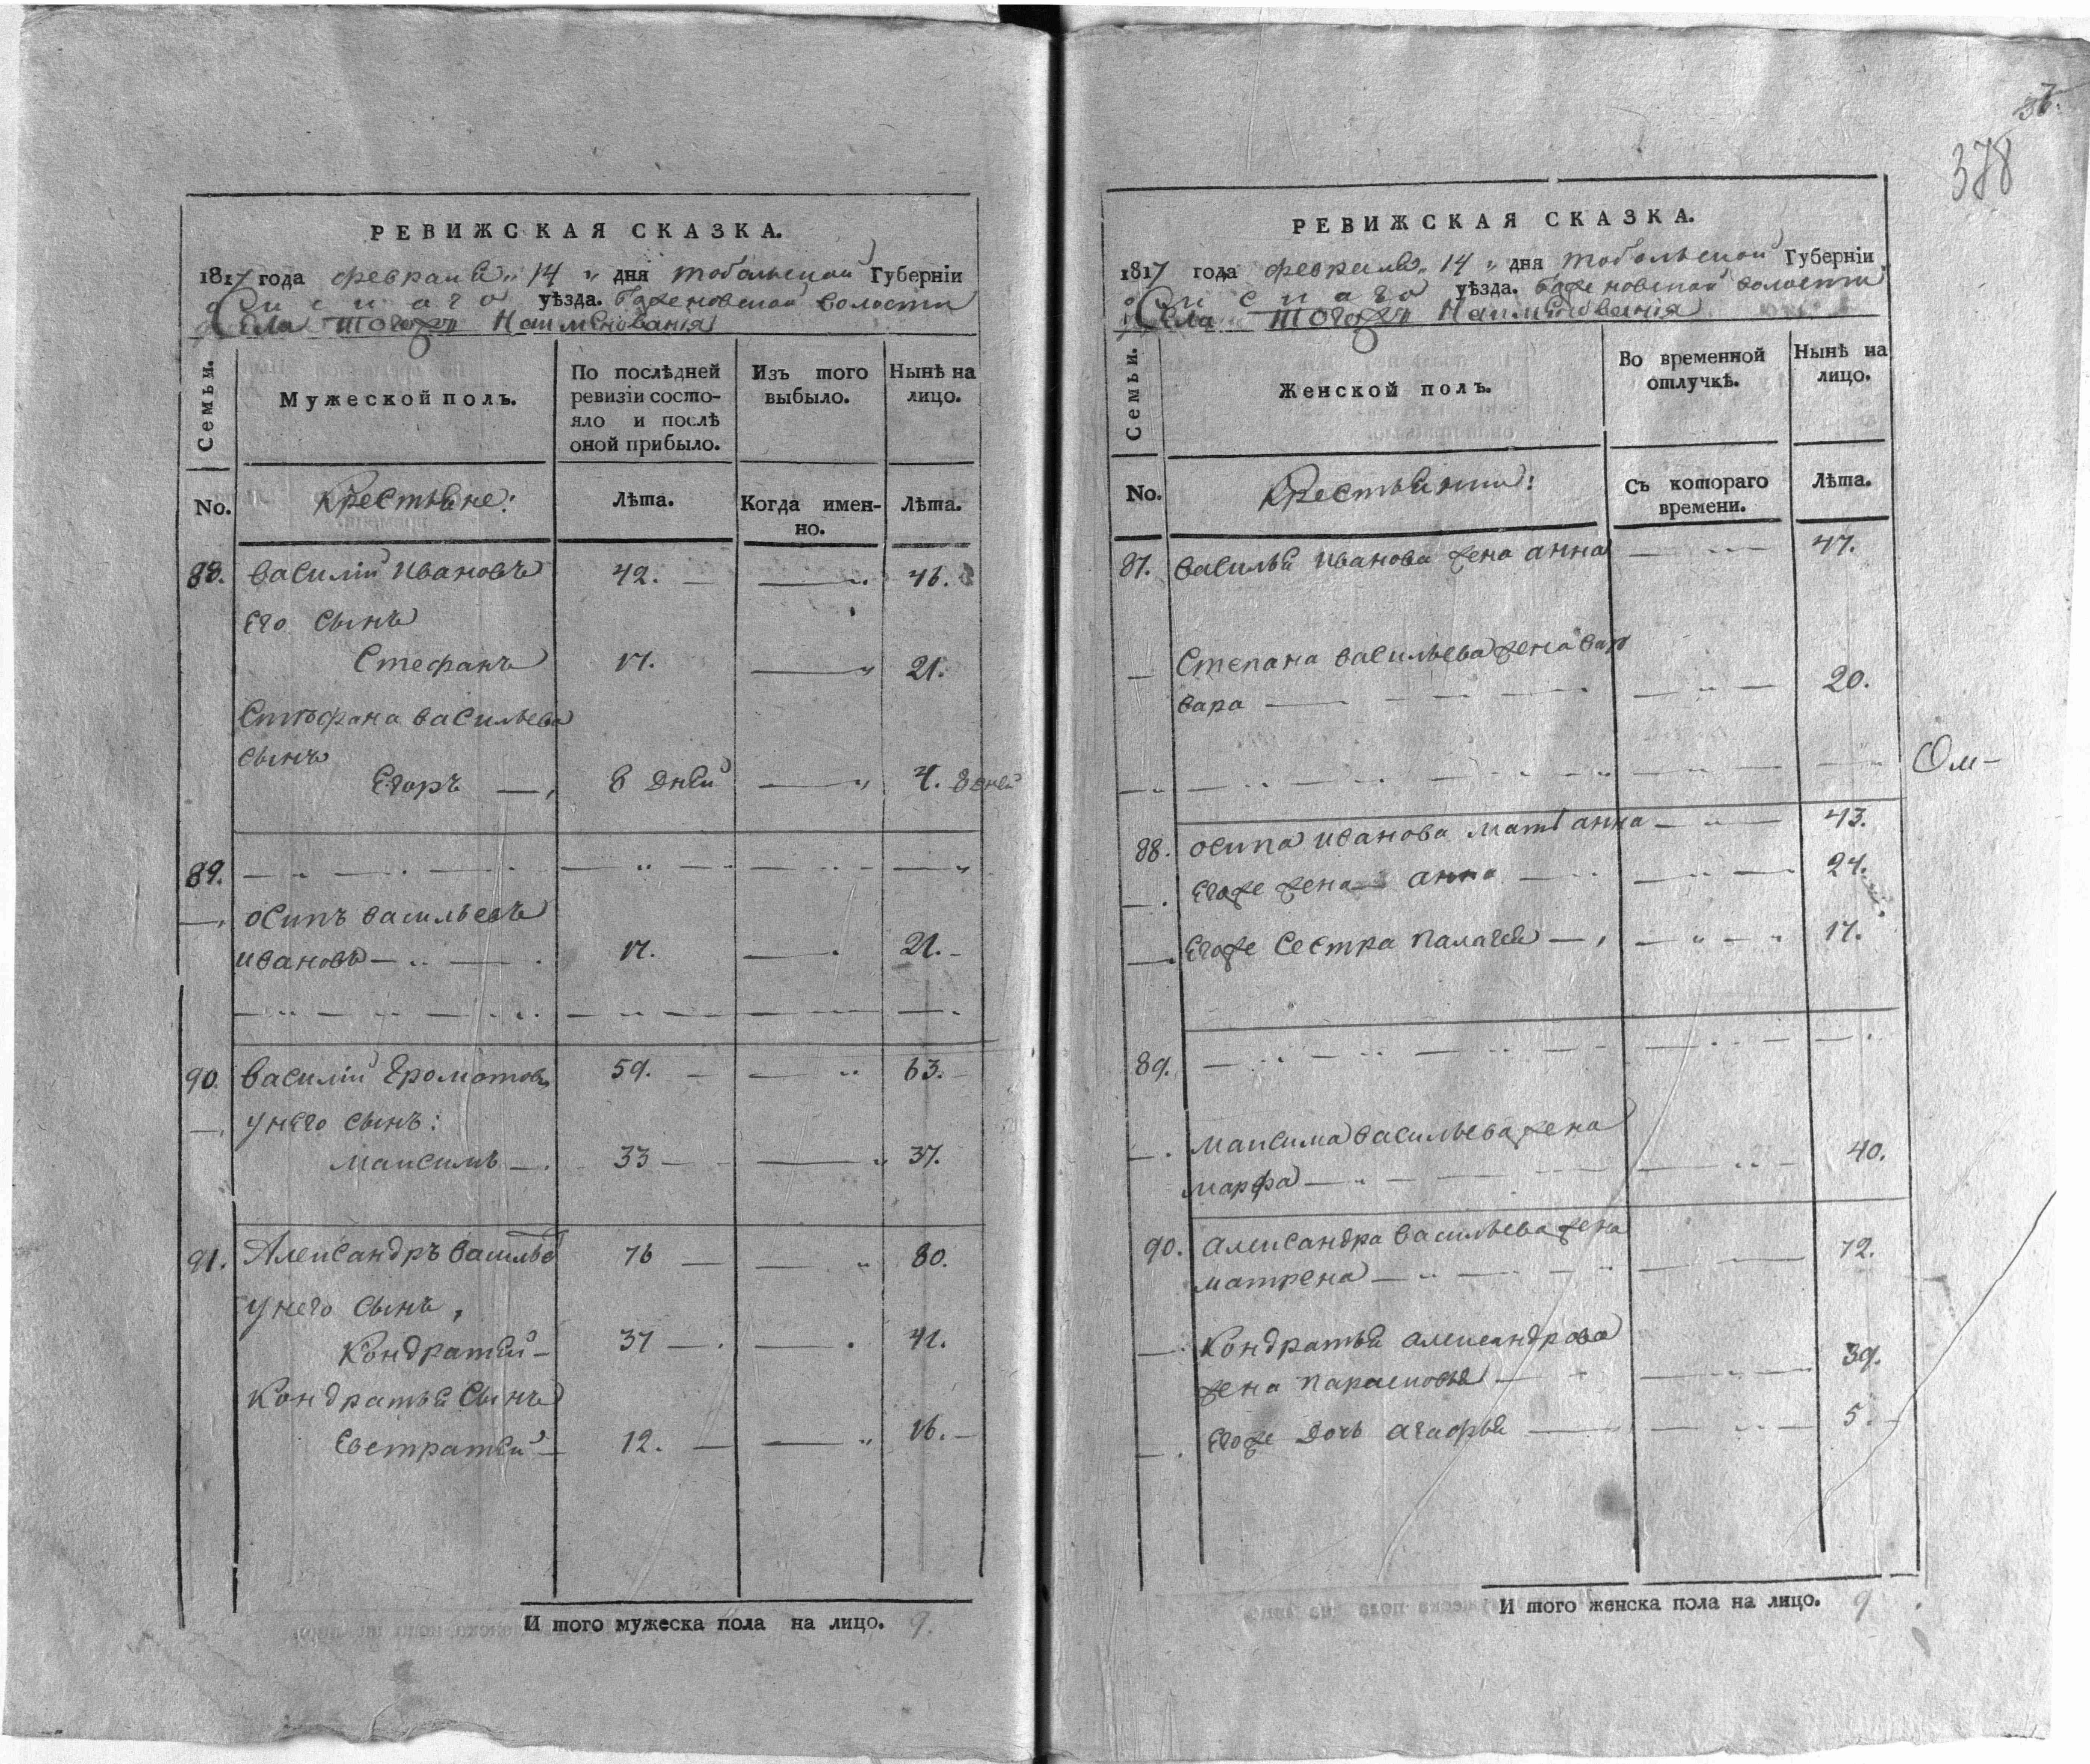 РЕВИЖСКАЯ СКАЗКА.
1817 года февраля „ 14 „ дня Тобольской Губерніи
Омскаго уѣзда. Баженовской волости
Села тогожъ Наименованія
Семьи.
Мужеской полъ.
По послѣдней ревизіи состо-
яло и послѣ
оной прибыло.
Изъ того
выбыло.
Нынѣ на
лицо.
No.
Крестьяне:
Лѣта.
Когда имен-
но.
Лѣта.
88. Василий Ивановъ 42. 46.
Его сынъ
Стефанъ 17. 21.
Стефана Васильева
сынъ
Егоръ 8 дней 4. 8 дней
89.
Осипъ Васильевъ
Ивановъ 17. 21.
90. Василий Громотовъ 59. 63.
у него сынъ:
Максимъ 33 37.
91. Александръ Васильев 76 80.
у него сынъ,
Кондратей 37 41.
Кондратья сынъ
Евстратей 12. 16.
И того мужеска пола на лицо. 9.
37.
378
РЕВИЖСКАЯ СКАЗКА.
1817 года февраля „ 14 „ дня Тобольской Губерніи
Омскаго уѣзда. Баженовской волости
Села тогожъ Наименованія
Семьи.
Женской полъ.
Во временной
отлучкѣ.
Нынѣ на
лицо.
No.
Крестьянки:
Съ котораго
времени.
Лѣта.
87. Василья Иванова жена Анна 47.
Степана Васильева жена Вар
вара 20.
Ом-
88. Осипа Иванова мать Анна 43.
Егоже жена Анна 24.
Егоже сестра Палагея 17.
89.
Максима Васильева жена
Марфа 40.
90. Александра Васильева жена
Матрена 72.
Кондратья Александрова
жена Парасковья 39.
Егоже дочь Агафья 5.
И того женска пола на лицо. 9